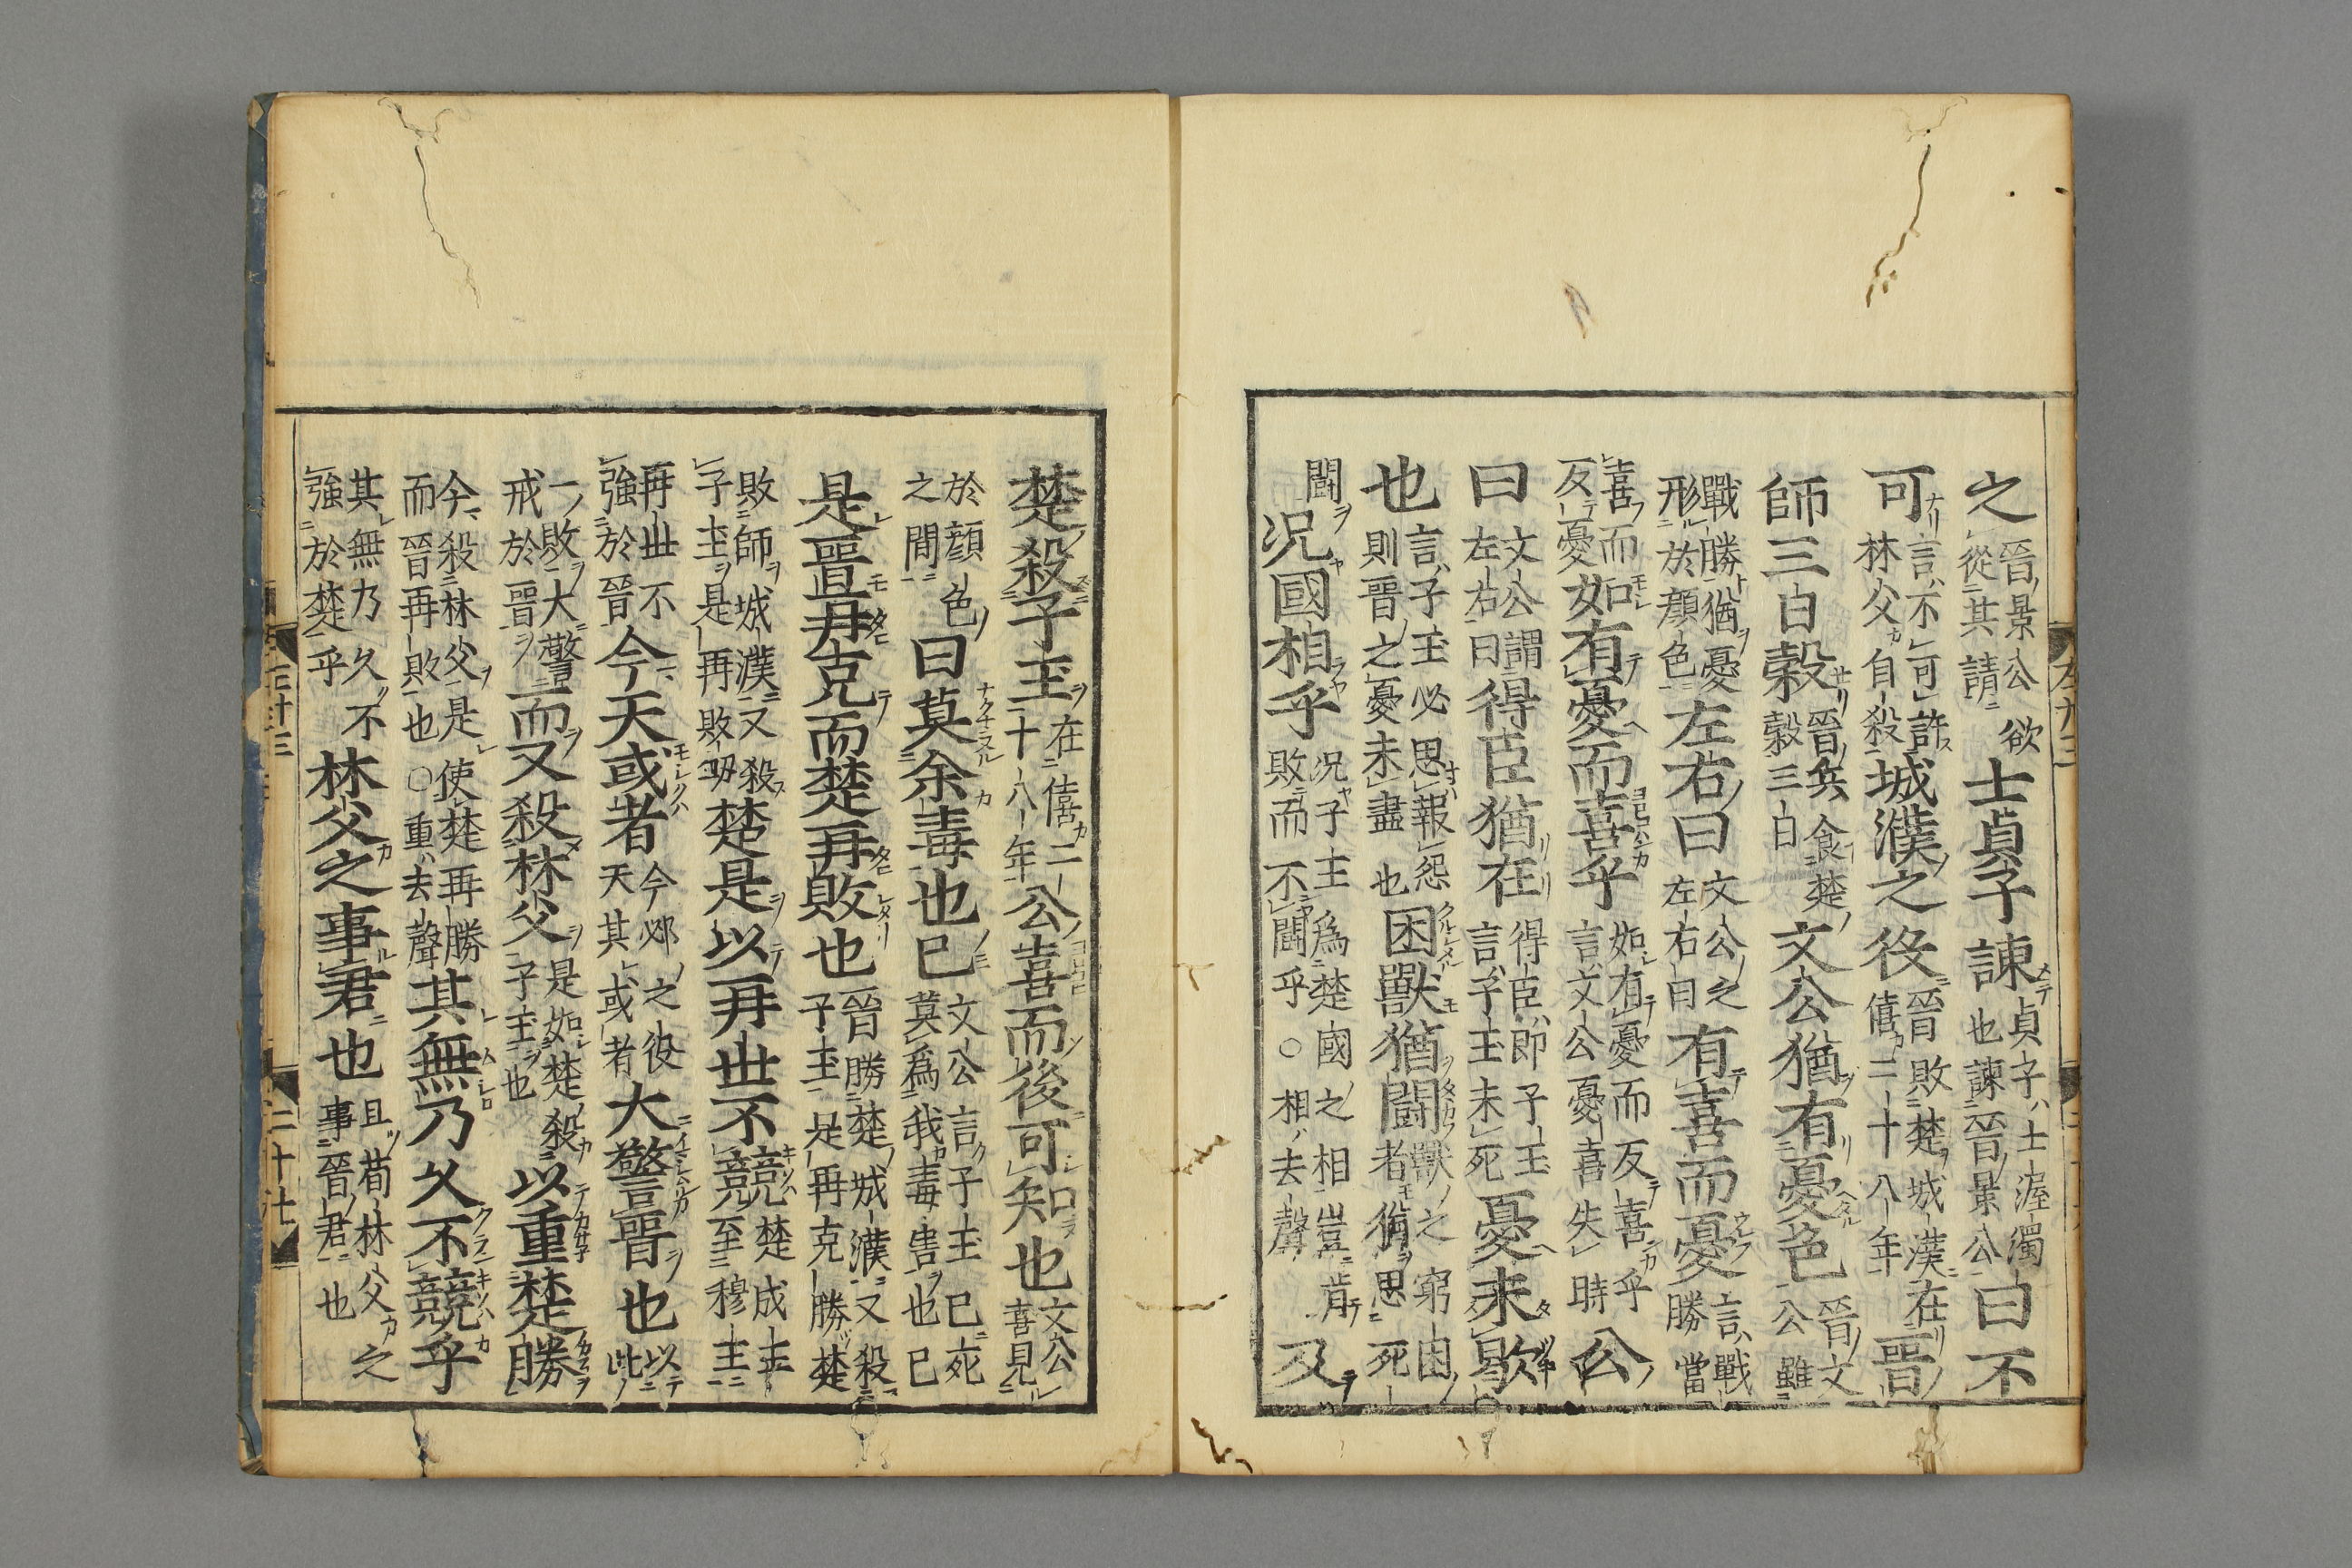 之晉景公欲從其請士貞子諫貞子士渥濁也諫晉景公曰不
可言不可許林父自殺城濮之役晉敗楚城濮在僖二十八年晉
師三日穀晉兵食楚穀三日文公猶有憂色晉文公雖
戰勝猶憂形於顏色左右曰文公之左右曰有喜而憂言戰勝當
喜而反憂如有憂而喜乎如有憂而反喜乎言文公憂喜失時公
曰文公謂左右曰得臣猶在得臣即子玉言子玉未死憂未歇
也言子玉必思報怨則晉之憂未盡也困獸猶鬬獸之窮困者猶思死
鬬况國相乎况子玉爲楚國之相豈肯敗而不鬬乎○相去聲及
楚殺子玉在僖二十八年公喜而後可知也文公喜見
於顏色之間曰莫余毒也已文公言子玉已死莫爲我毒害也已
是晉再克而楚再敗也晉勝楚城濮又殺子玉是再克勝楚
敗師城濮又殺子玉是再敗刃楚是以再世不競楚成王至穆王
再世不強於晉今天或者今邲之役天其或者大警晉也以此
一敗大警戒於晉而又殺林父是如楚殺子玉也以重楚勝
今殺林父是使楚再勝而晉再敗也○重去聲其無乃久不競乎
其無乃久不強於楚乎林父之事君也且荀林父之事晉君也